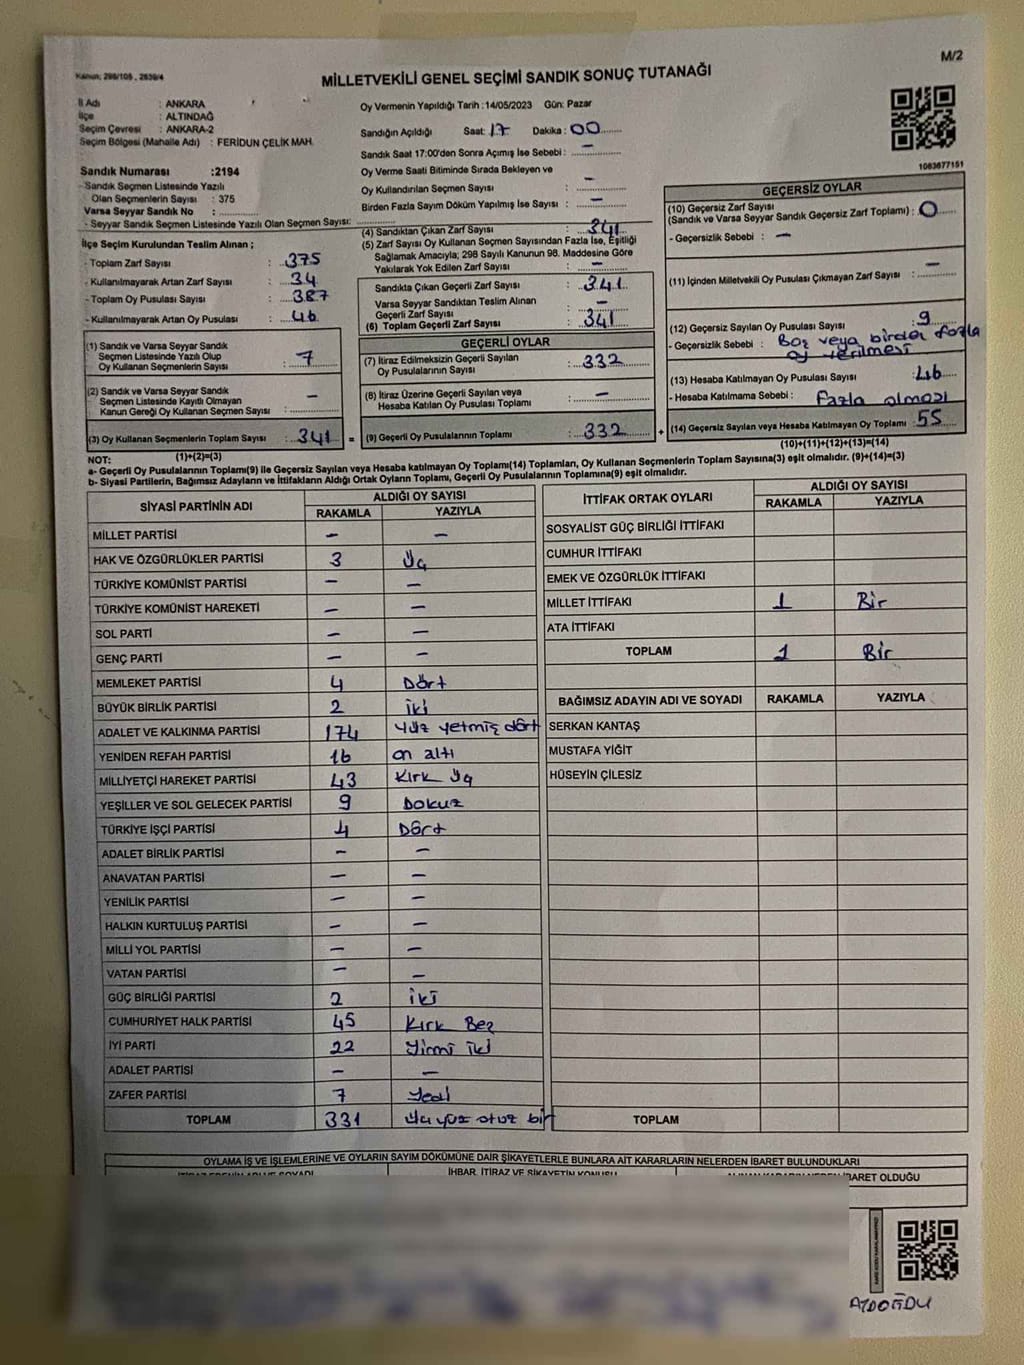 M/2
Kanun; 298/105 , 2839/4
MİLLETVEKİLİ GENEL SEÇİMİ SANDIK SONUÇ TUTANAĞI
İl Adı : ANKARA
İlçe : ALTINDAĞ
Seçim Çevresi : ANKARA-2
Seçim Bölgesi (Mahalle Adı) : FERİDUN ÇELİK MAH.
Oy Vermenin Yapıldığı Tarih :14/05/2023 Gün: Pazar
Sandığın Açıldığı Saat: 17 Dakika : 00
Sandık Saat 17:00'den Sonra Açımış İse Sebebi : —
Oy Verme Saati Bitiminde Sırada Bekleyen ve
Oy Kullandırılan Seçmen Sayısı : —
Birden Fazla Sayım Döküm Yapılmış İse Sayısı : —
1083677151
Sandık Numarası :2194
- Sandık Seçmen Listesinde Yazılı
Olan Seçmenlerin Sayısı : 375
Varsa Seyyar Sandık No :
- Seyyar Sandık Seçmen Listesinde Yazılı Olan Seçmen Sayısı:
İlçe Seçim Kurulundan Teslim Alınan ;
- Toplam Zarf Sayısı : 375
- Kullanılmayarak Artan Zarf Sayısı : 34
- Toplam Oy Pusulası Sayısı : 387
- Kullanılmayarak Artan Oy Pusulası : 46
(1) Sandık ve Varsa Seyyar Sandık
Seçmen Listesinde Yazılı Olup
Oy Kullanan Seçmenlerin Sayısı : 7
(2) Sandık ve Varsa Seyyar Sandık
Seçmen Listesinde Kayıtlı Olmayan
Kanun Gereği Oy Kullanan Seçmen Sayısı : —
(3) Oy Kullanan Seçmenlerin Toplam Sayısı : 341 =
(1)+(2)=(3)
(4) Sandıktan Çıkan Zarf Sayısı : 341
(5) Zarf Sayısı Oy Kullanan Seçmen Sayısından Fazla İse, Eşitliği
Sağlamak Amacıyla; 298 Sayılı Kanunun 98. Maddesine Göre
Yakılarak Yok Edilen Zarf Sayısı : —
Sandıkta Çıkan Geçerli Zarf Sayısı : 341
Varsa Seyyar Sandıktan Teslim Alınan
Geçerli Zarf Sayısı : —
(6) Toplam Geçerli Zarf Sayısı : 341
GEÇERLİ OYLAR
(7) İtiraz Edilmeksizin Geçerli Sayılan
Oy Pusulalarının Sayısı : 332
(8) İtiraz Üzerine Geçerli Sayılan veya
Hesaba Katılan Oy Pusulası Toplamı : —
(9) Geçerli Oy Pusulalarının Toplamı : 332 +
GEÇERSİZ OYLAR
(10) Geçersiz Zarf Sayısı
(Sandık ve Varsa Seyyar Sandık Geçersiz Zarf Toplamı) : 0
- Geçersizlik Sebebi : —
(11) İçinden Milletvekili Oy Pusulası Çıkmayan Zarf Sayısı : —
(12) Geçersiz Sayılan Oy Pusulası Sayısı : 9
- Geçersizlik Sebebi : Boş veya birden fazla
oy verilmesi
(13) Hesaba Katılmayan Oy Pusulası Sayısı : 46
- Hesaba Katılmama Sebebi : Fazla olması
(14) Geçersiz Sayılan veya Hesaba Katılmayan Oy Toplamı : 55
(10)+(11)+(12)+(13)=(14)
NOT:
a- Geçerli Oy Pusulaları Toplamı(9) ile Geçersiz Sayılan veya Hesaba katılmayan Oy Toplamı(14) Toplamları, Oy Kullanan Seçmenlerin Toplam Sayısına(3) eşit olmalıdır. (9)+(14)=(3)
b- Siyasi Partilerin, Bağımsız Adayların ve İttifakların Aldığı Ortak Oyların Toplamı, Geçerli Oy Pusulalarının Toplamına(9) eşit olmalıdır.
SİYASİ PARTİNİN ADI ALDIĞI OY SAYISI
RAKAMLA YAZIYLA
MİLLET PARTİSİ — —
HAK VE ÖZGÜRLÜKLER PARTİSİ 3 Üç
TÜRKİYE KOMÜNİST PARTİSİ — —
TÜRKİYE KOMÜNİST HAREKETİ — —
SOL PARTİ — —
GENÇ PARTİ — —
MEMLEKET PARTİSİ 4 Dört
BÜYÜK BİRLİK PARTİSİ 2 iki
ADALET VE KALKINMA PARTİSİ 174 yüz yetmiş dört
YENİDEN REFAH PARTİSİ 16 on altı
MİLLİYETÇİ HAREKET PARTİSİ 43 Kırk üç
YEŞİLLER VE SOL GELECEK PARTİSİ 9 Dokuz
TÜRKİYE İŞÇİ PARTİSİ 4 Dört
ADALET BİRLİK PARTİSİ — —
ANAVATAN PARTİSİ — —
YENİLİK PARTİSİ — —
HALKIN KURTULUŞ PARTİSİ — —
MİLLİ YOL PARTİSİ — —
VATAN PARTİSİ — —
GÜÇ BİRLİĞİ PARTİSİ 2 iki
CUMHURİYET HALK PARTİSİ 45 Kırk Beş
İYİ PARTİ 22 Yirmi iki
ADALET PARTİSİ — —
ZAFER PARTİSİ 7 Yedi
TOPLAM 331 Üç yüz otuz bir
İTTİFAK ORTAK OYLARI ALDIĞI OY SAYISI
RAKAMLA YAZIYLA
SOSYALİST GÜÇ BİRLİĞİ İTTİFAKI
CUMHUR İTTİFAKI
EMEK VE ÖZGÜRLÜK İTTİFAKI
MİLLET İTTİFAKI 1 Bir
ATA İTTİFAKI
TOPLAM 1 Bir
BAĞIMSIZ ADAYIN ADI VE SOYADI RAKAMLA YAZIYLA
SERKAN KANTAŞ
MUSTAFA YİĞİT
HÜSEYİN ÇİLESİZ
TOPLAM
OYLAMA İŞ VE İŞLEMLERİNE VE OYLARIN SAYIM DÖKÜMÜNE DAİR ŞİKAYETLERLE BUNLARA AİT KARARLARIN NELERDEN İBARET BULUNDUKLARI
İHBAR, İTİRAZ VE ŞİKAYETİN KONUSU İBARET OLDUĞU
AYDOĞDU